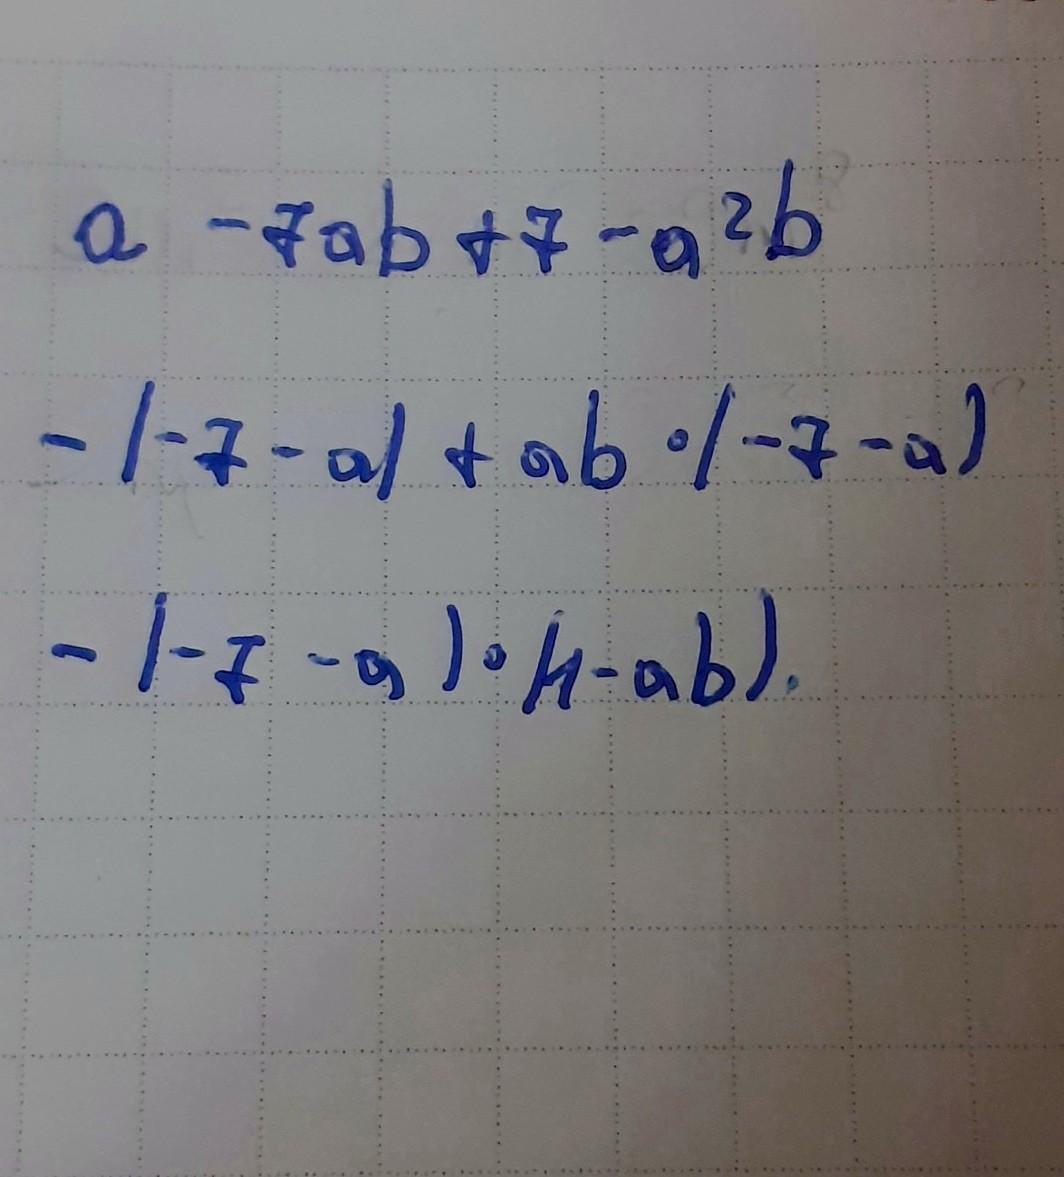 a -7ab+7-a²b
-(-7-a)+ab·(-7-a)
-(-7-a)·(1-ab).